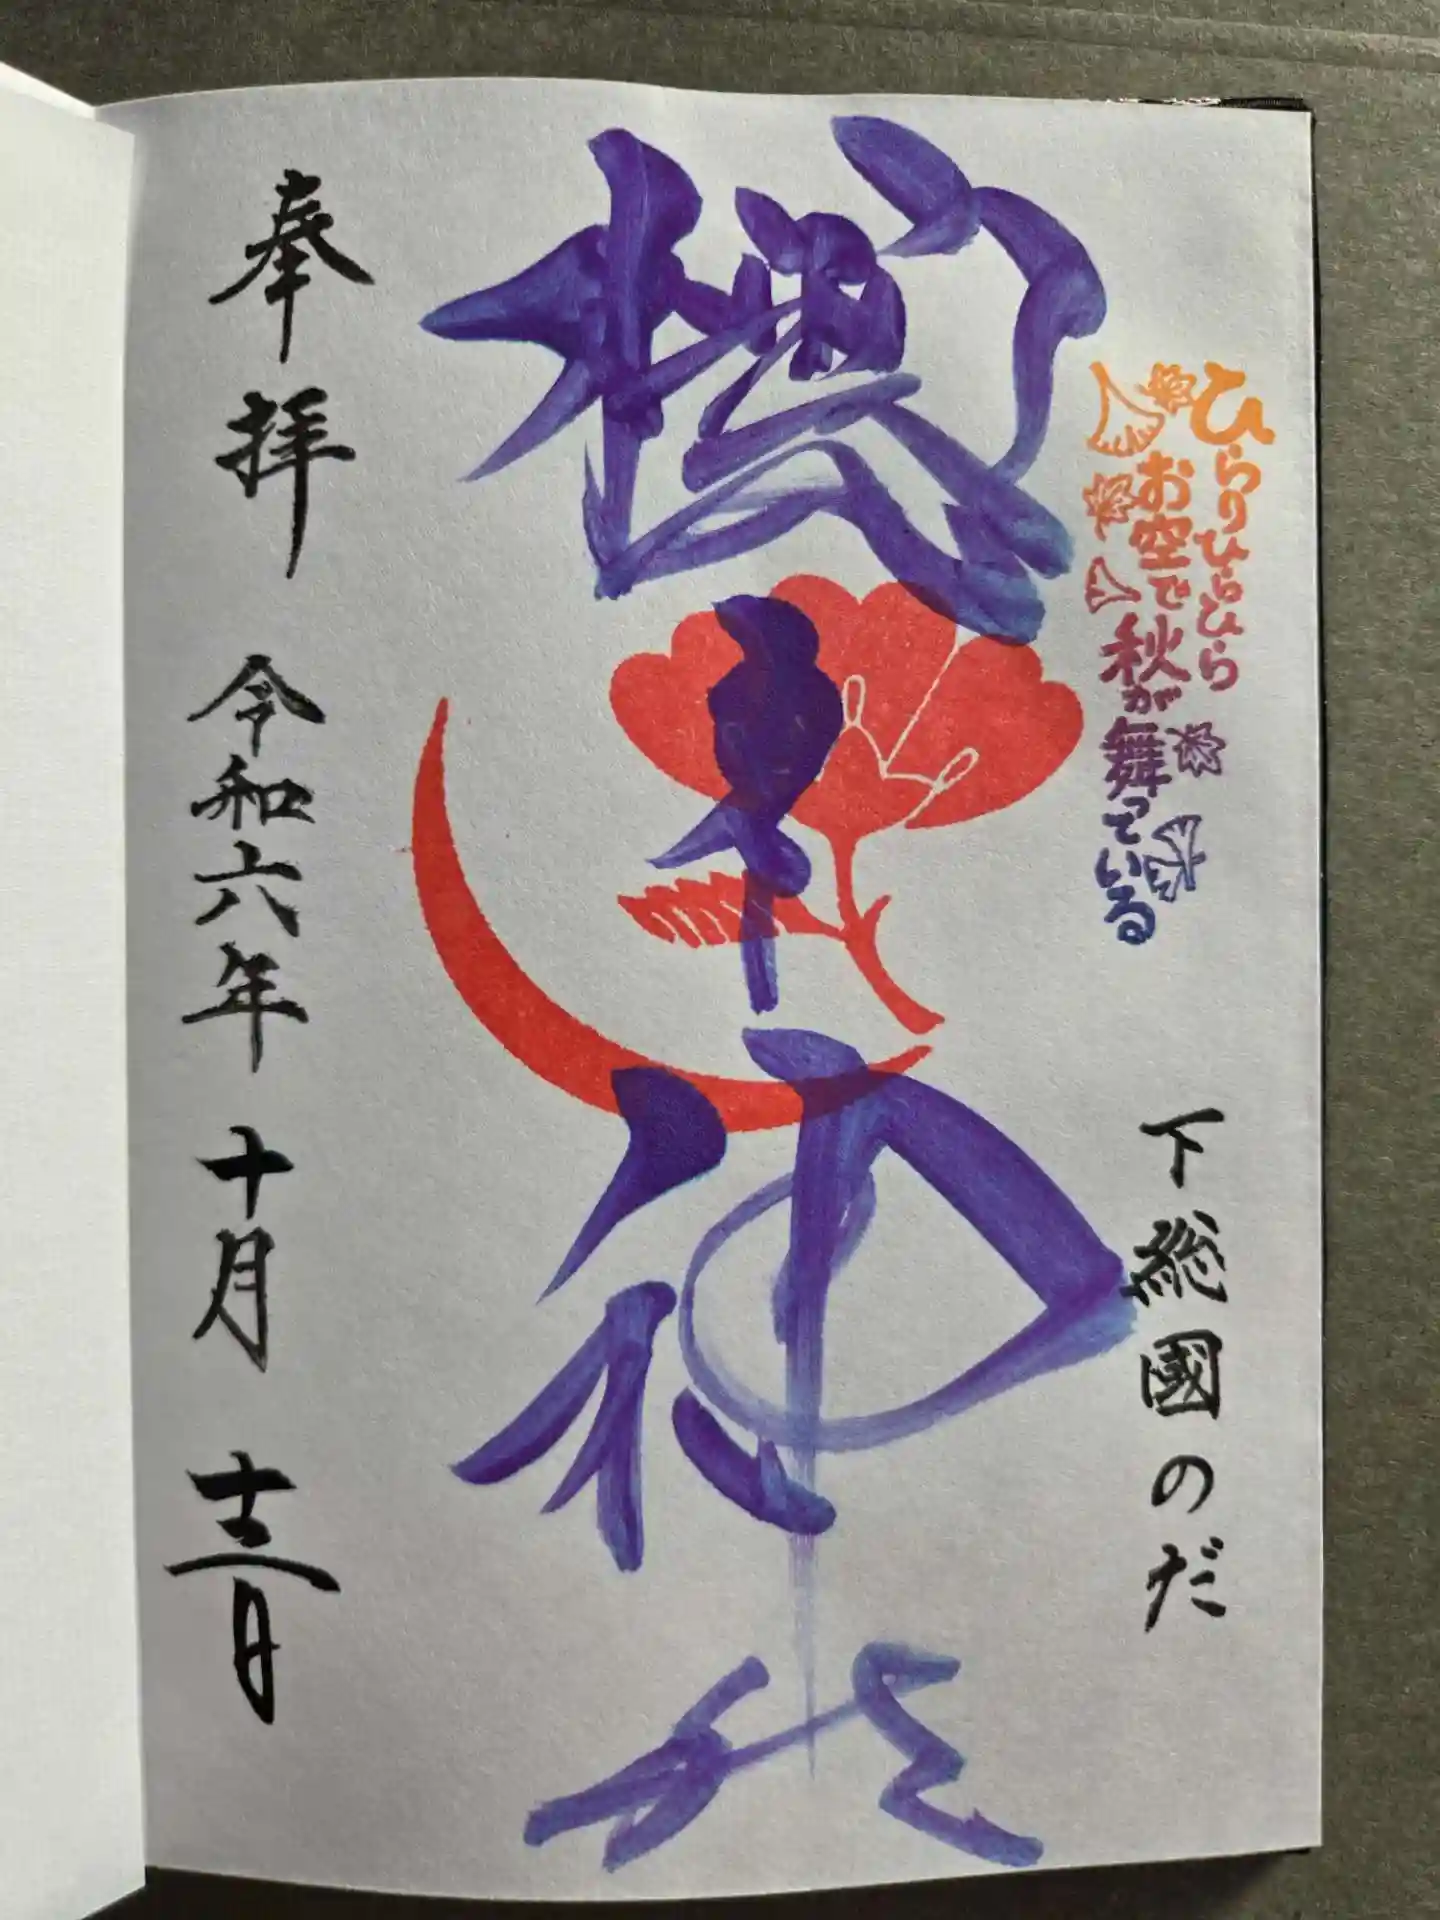 ひらりひらひら
お空で秋が舞っている
下総國のだ
櫻木神社
奉拝 令和六年十月十三日